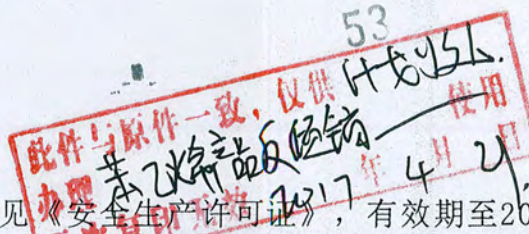 53
此件与原件一致，仅供计划
使用
办理苯乙烯产品及经销
2017年4月21日
见《安全生产许可证》，有效期至20